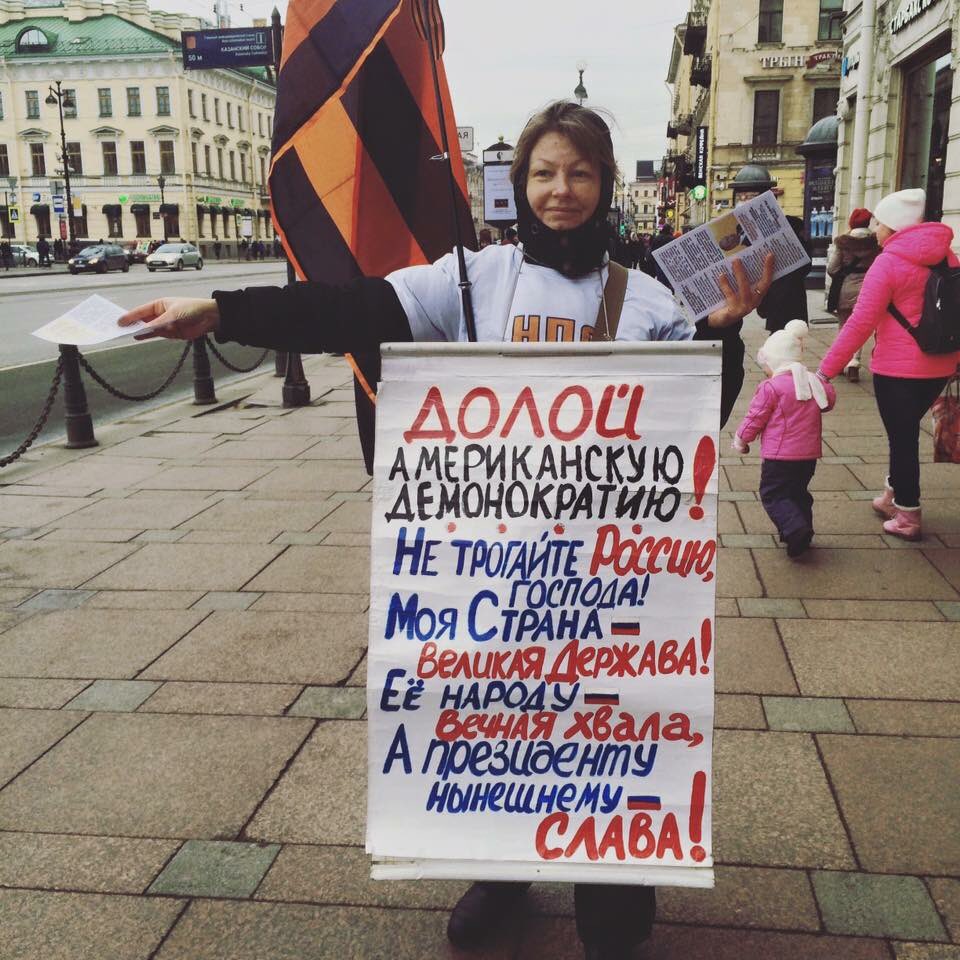 КАЗАНСКИЙ СОБОР
50 М
ТРЫН
ТРАКТ
НПО
ДОЛОЙ
АМЕРИКАНСКУЮ
ДЕМОНОКРАТИЮ!
НЕ ТРОГАЙТЕ РОССИЮ,
ГОСПОДА!
МОЯ СТРАНА –
ВЕЛИКАЯ ДЕРЖАВА!
ЕЁ НАРОДУ –
ВЕЧНАЯ ХВАЛА,
А ПРЕЗИДЕНТУ
НЫНЕШНЕМУ –
СЛАВА!